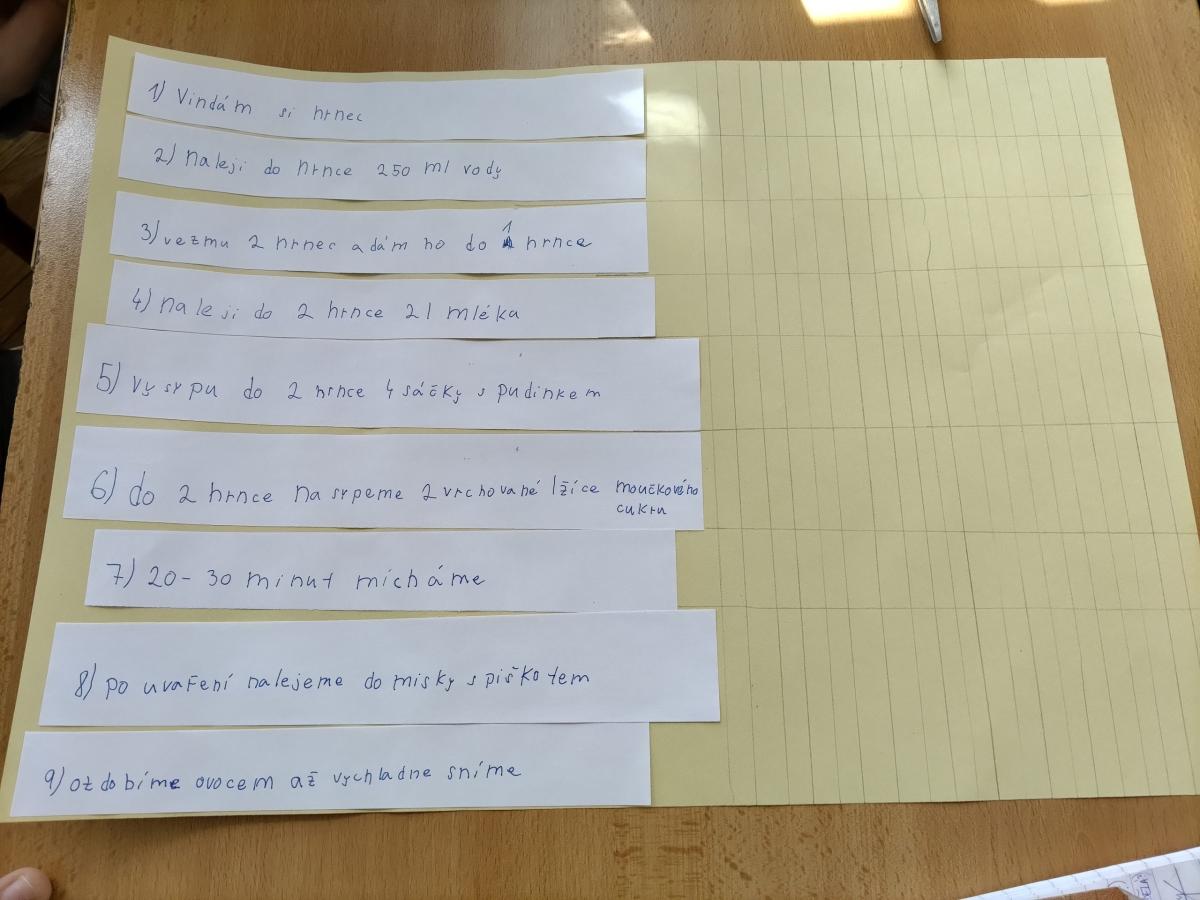 1) Vindám si hrnec
2) naleji do hrnce 250 ml vody
3) vezmu 2 hrnec a dám ho do 1 hrnce
4) naleji do 2 hrnce 2 l mléka
5) vysypu do 2 hrnce 4 sáčky s pudinkem
6) do 2 hrnce nasypeme 2 vrchované lžíce moučkového
cukru
7) 20-30 minut mícháme
8) po uvaření nalejeme do misky s piškotem
9) ozdobíme ovocem až vychladne sníme